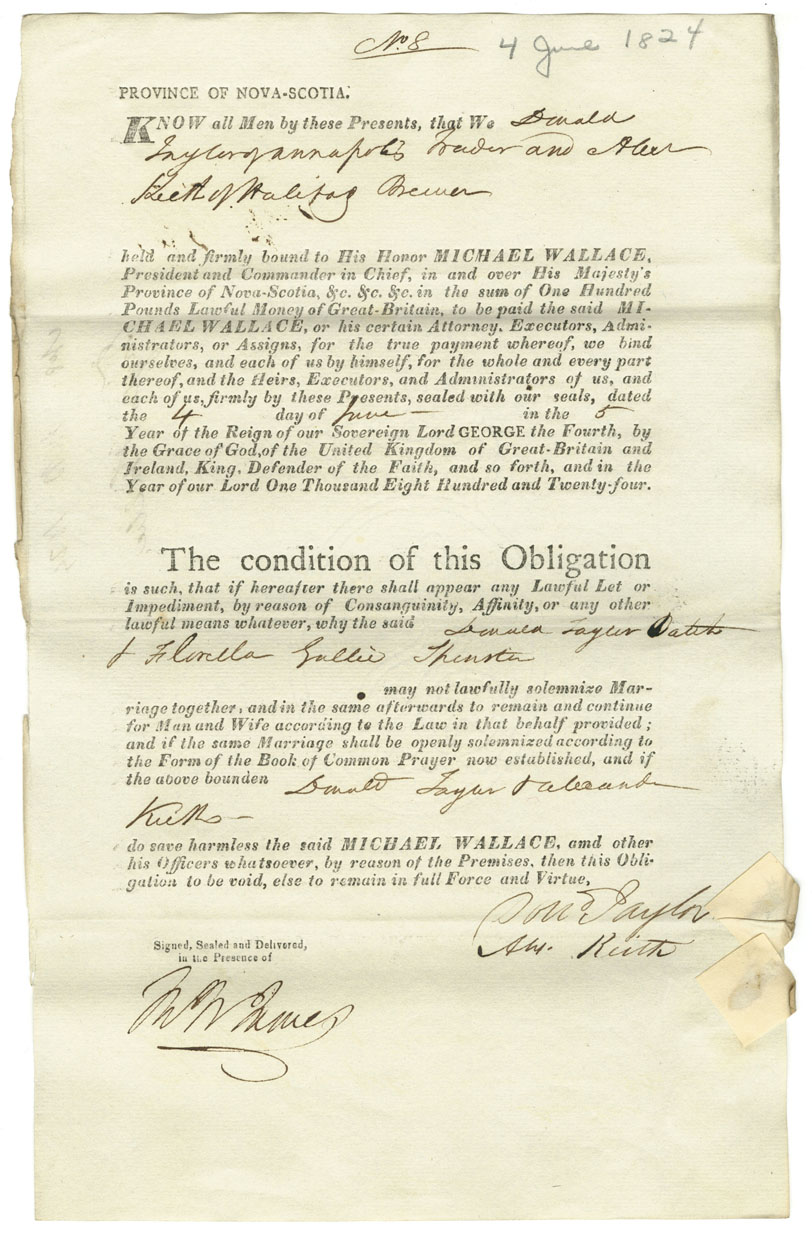 No. 8 4 June 1824
PROVINCE OF NOVA-SCOTIA.
KNOW all Men by these Presents, that We Donald
Taylor of Annapolis Trader and Alexr
Keith of Halifax Brewer
held and firmly bound to His Honor MICHAEL WALLACE,
President and Commander in Chief, in and over His Majesty's
Province of Nova-Scotia, &c. &c. &c. in the sum of One Hundred
Pounds Lawful Money of Great-Britain, to be paid the said MI-
CHAEL WALLACE, or his certain Attorney, Executors, Admi-
nistrators, or Assigns, for the true payment whereof, we bind
ourselves, and each of us by himself, for the whole and every part
thereof, and the Heirs, Executors, and Administrators of us, and
each of us, firmly by these Presents, sealed with our seals, dated
the 4 day of June in the 5
Year of the Reign of our Sovereign Lord GEORGE the Fourth, by
the Grace of God, of the United Kingdom of Great-Britain and
Ireland, King, Defender of the Faith, and so forth, and in the
Year of our Lord One Thousand Eight Hundred and Twenty-four.
The condition of this Obligation
is such, that if hereafter there shall appear any Lawful Let or
Impediment, by reason of Consanguinity, Affinity, or any other
lawful means whatever, why the said Donald Taylor Batch
& Florella Gallie Spinster
may not lawfully solemnize Mar-
riage together, and in the same afterwards to remain and continue
for Man and Wife according to the Law in that behalf provided;
and if the same Marriage shall be openly solemnized according to
the Form of the Book of Common Prayer now established, and if
the above bounden Donald Taylor & Alexander
Keith
do save harmless the said MICHAEL WALLACE, amd other
his Officers whatsoever, by reason of the Premises, then this Obli-
gation to be void, else to remain in full Force and Virtue,
Dond Taylor
Signed, Sealed and Delivered, Alx. Keith
in the Presence of